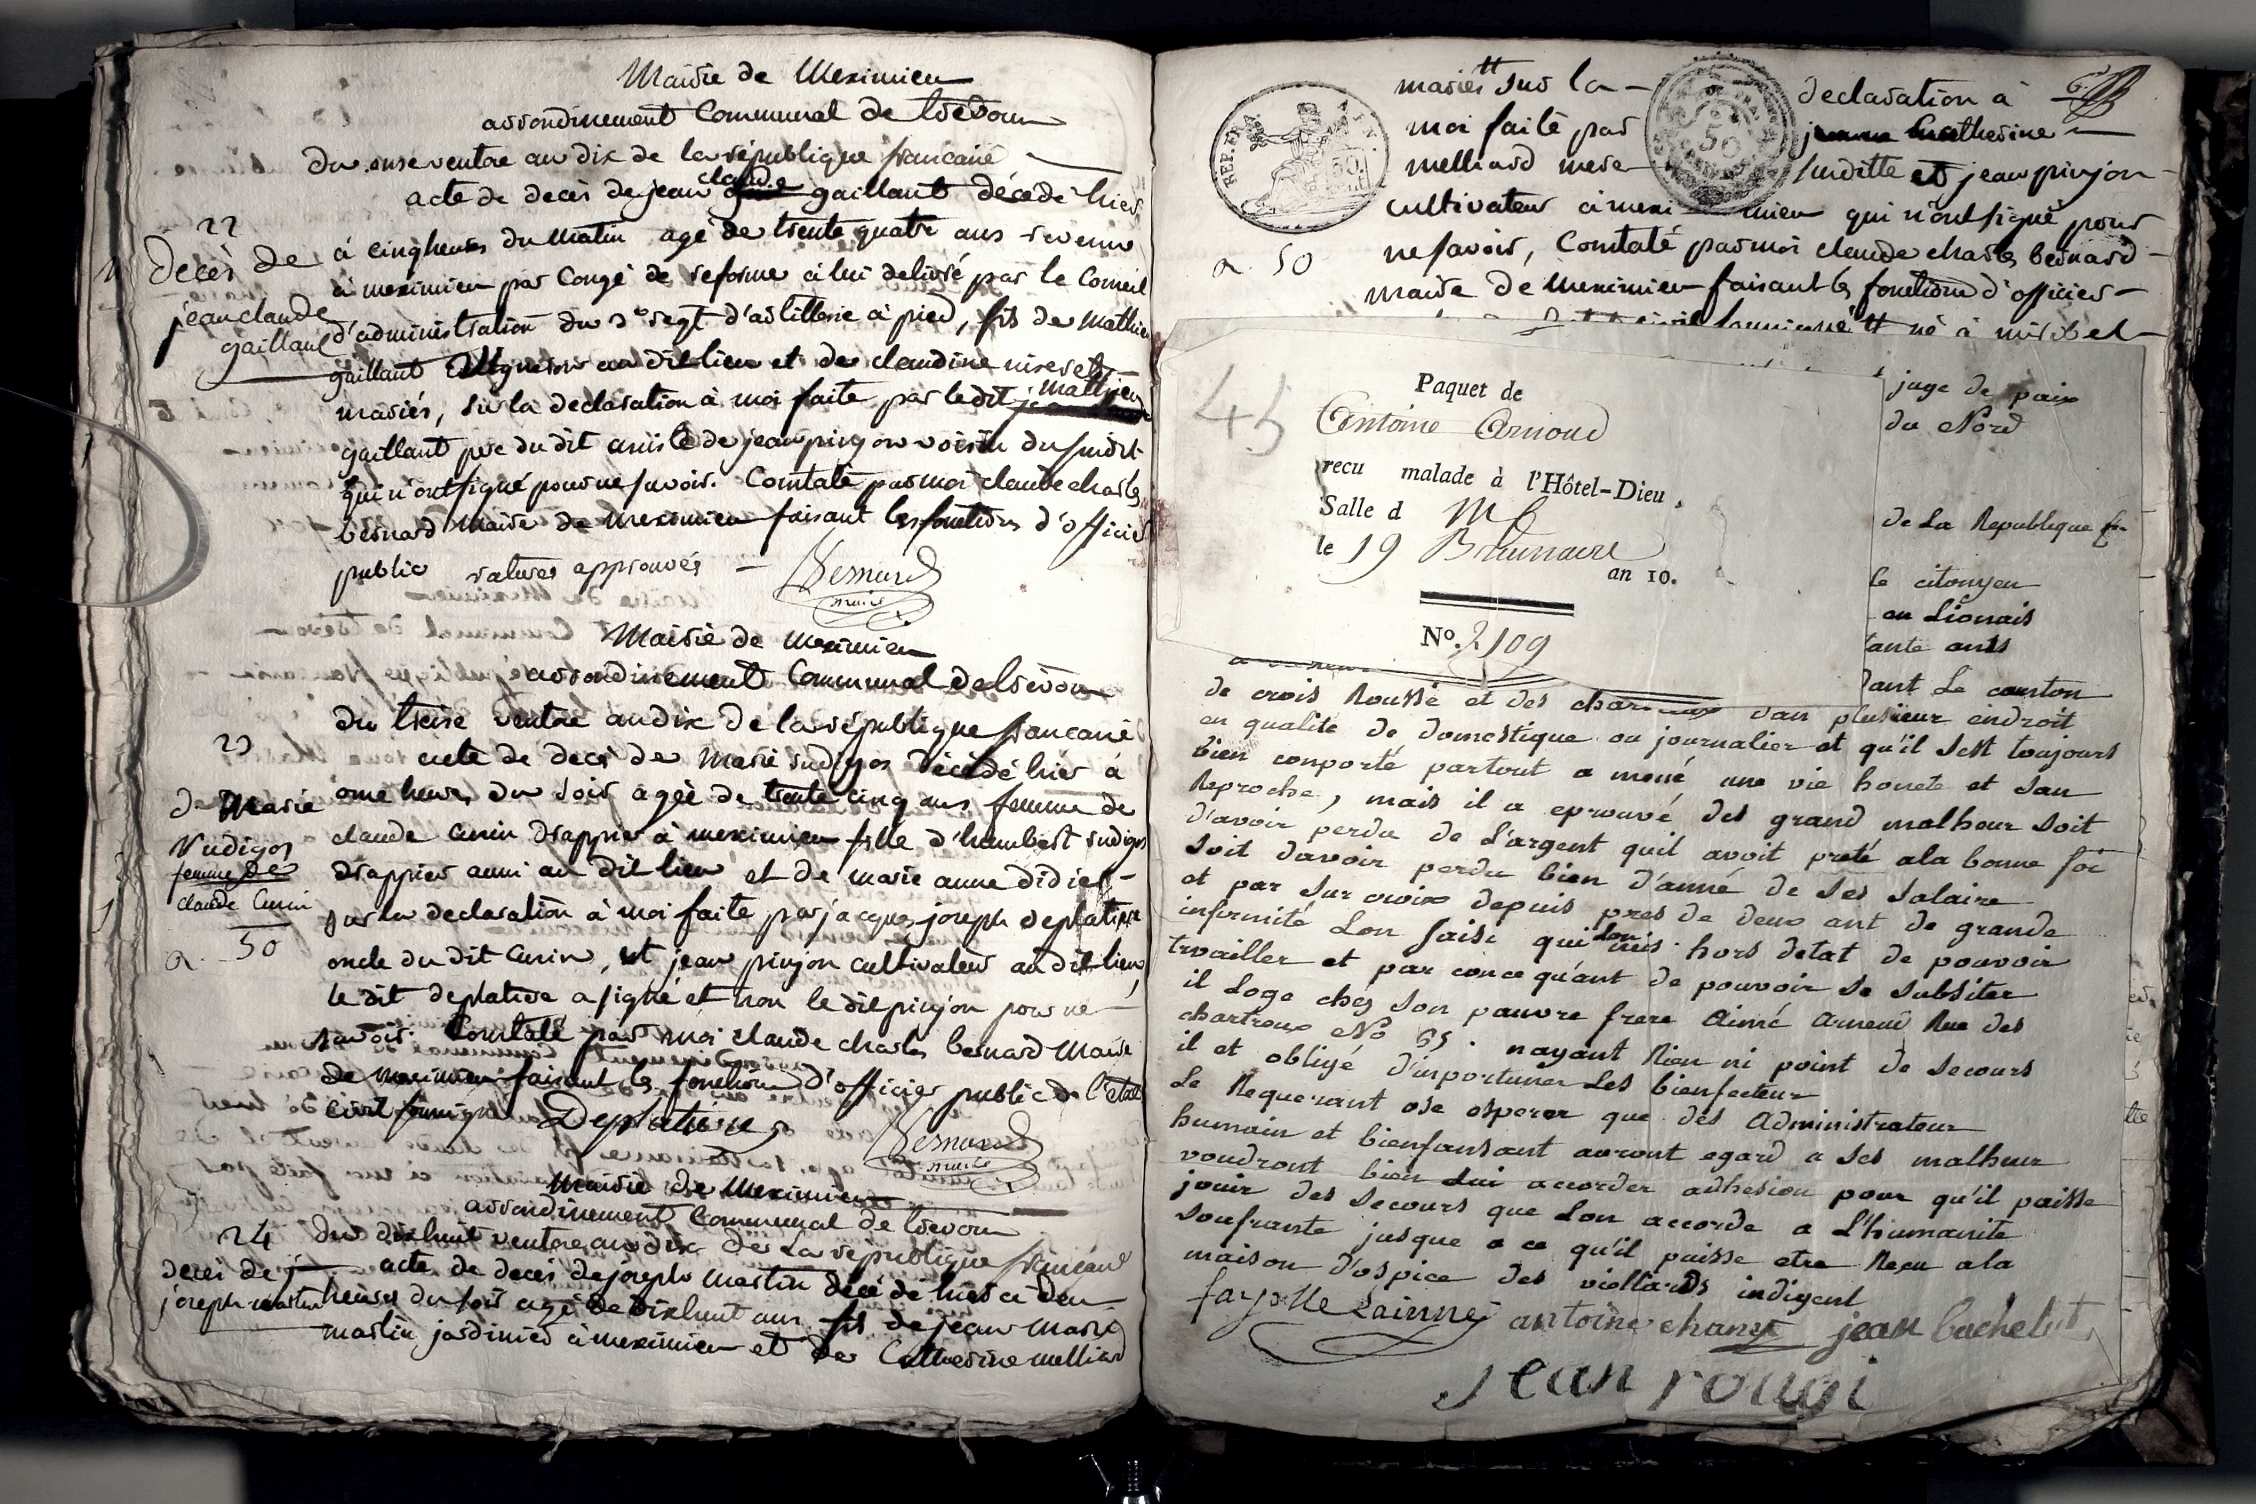 Mairie de Meximieu
arrondinement Communal de trévoux
du onse ventse an dix de la république francaise
acte de decès de jean claude gaillant décédé hier
22
decès de
jean claude
gaillant
à cinq heures du matin agé de trente quatre ans revenu
à meximieu par Congé de reforme à lui delivré par le Conseil
d'administration du 3e regt d'artillerie à pied, fils de Mathieu
gaillant Vigneron au dit lieu et de claudine niseret
mariés, sur la declaration à moi faite par le dit mathieu
gaillant pere du dit et de jean pinjon voisin du susdit
qui n'ont signé pour ne savoir. Constaté par moi claude charles
bernard Maire de meximieu faisant les fonctions d'officier
public ratures approuvés
Bernard
maire
Mairie de meximieu
arrondissement Communal de trévoux
du treise ventse an dix de la république francaise
23
de Marie
Rudigos
femme de
claude Cunin
50
acte de decès de Marie rudigos décédé hier à
onse heures du soir agée de trente cinq ans femme de
claude Cunin drappier à meximieu fille d'humbert rudigos
drappier aussi au dit lieu et de marie anne didier
sur la declaration à moi faite par jacques joseph deplatiere
oncle du dit Cunin, et jean pinjon cultivateur au dit lieu
le dit deplatiere a signé et non le dit pinjon pour ne
savoir. Constaté par moi claude charles bernard Maire
de meximieu faisant les fonctions d'officier public de l'etat
civil soussigné Deplatiere
Bernard
maire
Mairie de Meximieu
arrondinement Communal de trevoux
24
deces de
joseph martin
du dixhuit ventse an dix de La république francaise
acte de deces de joseph martin décédé hier à deux
heures du soir agé de dixhuit ans fils de jean Marie
martin jardinier à meximieu et de Catherine melliard
mariés sur la declaration à
moi faite par jeanne Catherine
melliard mere susditte et jean pinjon
cultivateur à meximieu qui n'ont signé pour
ne savoir, Constaté par moi claude charles bernard
maire de meximieu faisant les fonctions d'officier
civil soussigné né à miribel
REP. FRA.
50
50
45
Paquet de
Antoine Arnoud
recu malade à l'Hôtel-Dieu,
Salle d
le 19 Brumaire
an 10.
No. 2109
juge de paix
du Nord
de La Republique
le citoyen
en Lionais
tante ants
dant Le canton
de crois Rousse et des chartreux dan plusieur endroit
en qualité de domestique ou journalier et qu'il sest toujours
bien conporté partout a mené une vie honete et san
Reproche, mais il a eprouvé des grand malheur soit
d'avoir perdu de L'argent quil avoit preté ala bonne foi
soit davoir perdu bien d'anné de ses salaire
et par sur croix depuis pres de deux ant de grande
infirmité Lon saisi qui Lon mis hors detat de pouvoir
travailler et par concequ'ant de pouvoir se subsiter
il Loge chés son pauvre frere Aimé Arneud Rue des
chartreux No 65. nayant Rien ni point de secours
il et obligé d'inportuner Les bienfecteur
Le Requerant ose esperer que des Administrateur
humain et bienfansant auront egard a ses malheur
voudront bien Lui accorder adhesion pour qu'il puisse
jouir des secours que Lon accorde a L'humanité
soufrante jusque a ce qu'il puisse etre Recu ala
maison d'ospice des viellards indigent
fayolle Lainné antoine chany jean bachelut
jean rougi